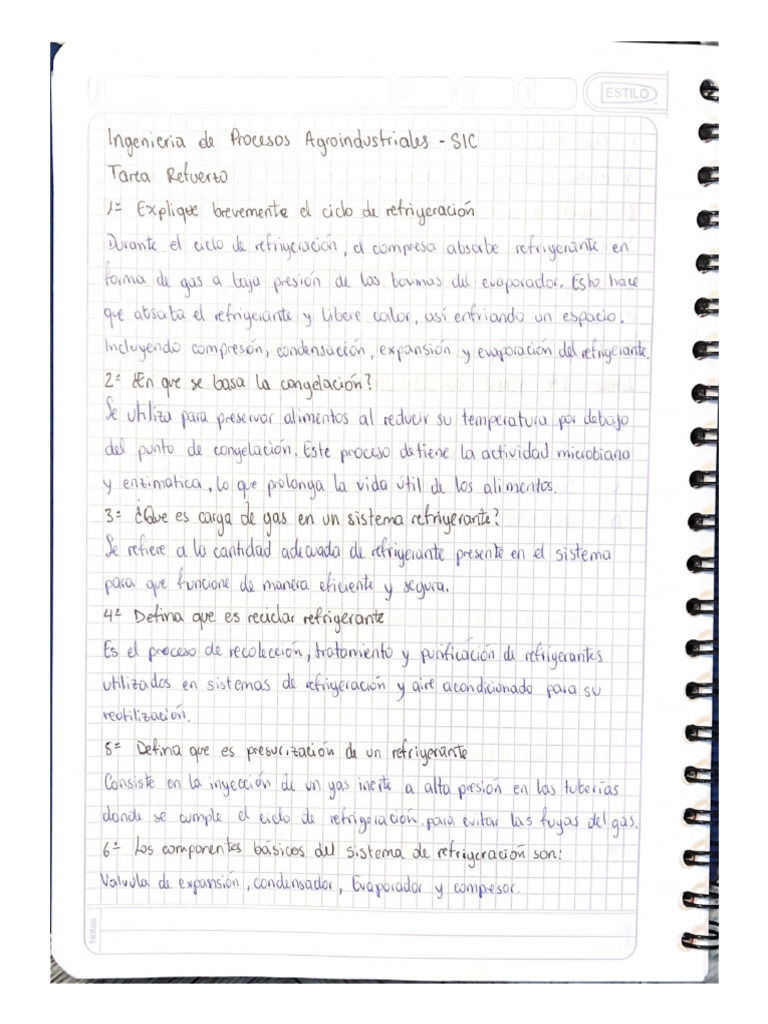 ESTILO
Ingenieria de Procesos Agroindustriales - SIC
Tarea Refuerzo
1º Explique brevemente el ciclo de refrigeración
Durante el ciclo de refrigeración, el compresa absorbe refrigerante en
forma de gas a baja presión de las bovinas del evaporador. Esto hace
que absorba el refrigerante y libere calor, así enfriando un espacio.
Incluyendo compresón, condensación, expansión y evaporación del refrigerante.
2º ¿En que se basa la congelación?
Se utiliza para preservar alimentos al reducir su temperatura por debajo
del punto de congelación. Este proceso detiene la actividad microbiana
y enzimatica, lo que prolonga la vida útil de los alimentos.
3º ¿Que es carga de gas en un sistema refrigerante?
Se refiere a la cantidad adecuada de refrigerante presente en el sistema
para que funcione de manera eficiente y segura.
4º Defina que es reciclar refrigerante
Es el proceso de recolección, tratamiento y purificación de refrigerantes
utilizados en sistemas de refrigeración y aire acondicionado para su
reutilización.
5º Defina que es presurización de un refrigerante
Consiste en la inyección de un gas inerte a alta presión en las tuberías
donde se cumple el ciclo de refrigeración, para evitar las fugas del gas.
6º Los componentes básicos del sistema de refrigeración son:
Valvula de expansión, condensador, Evaporador y compresor.
Notas